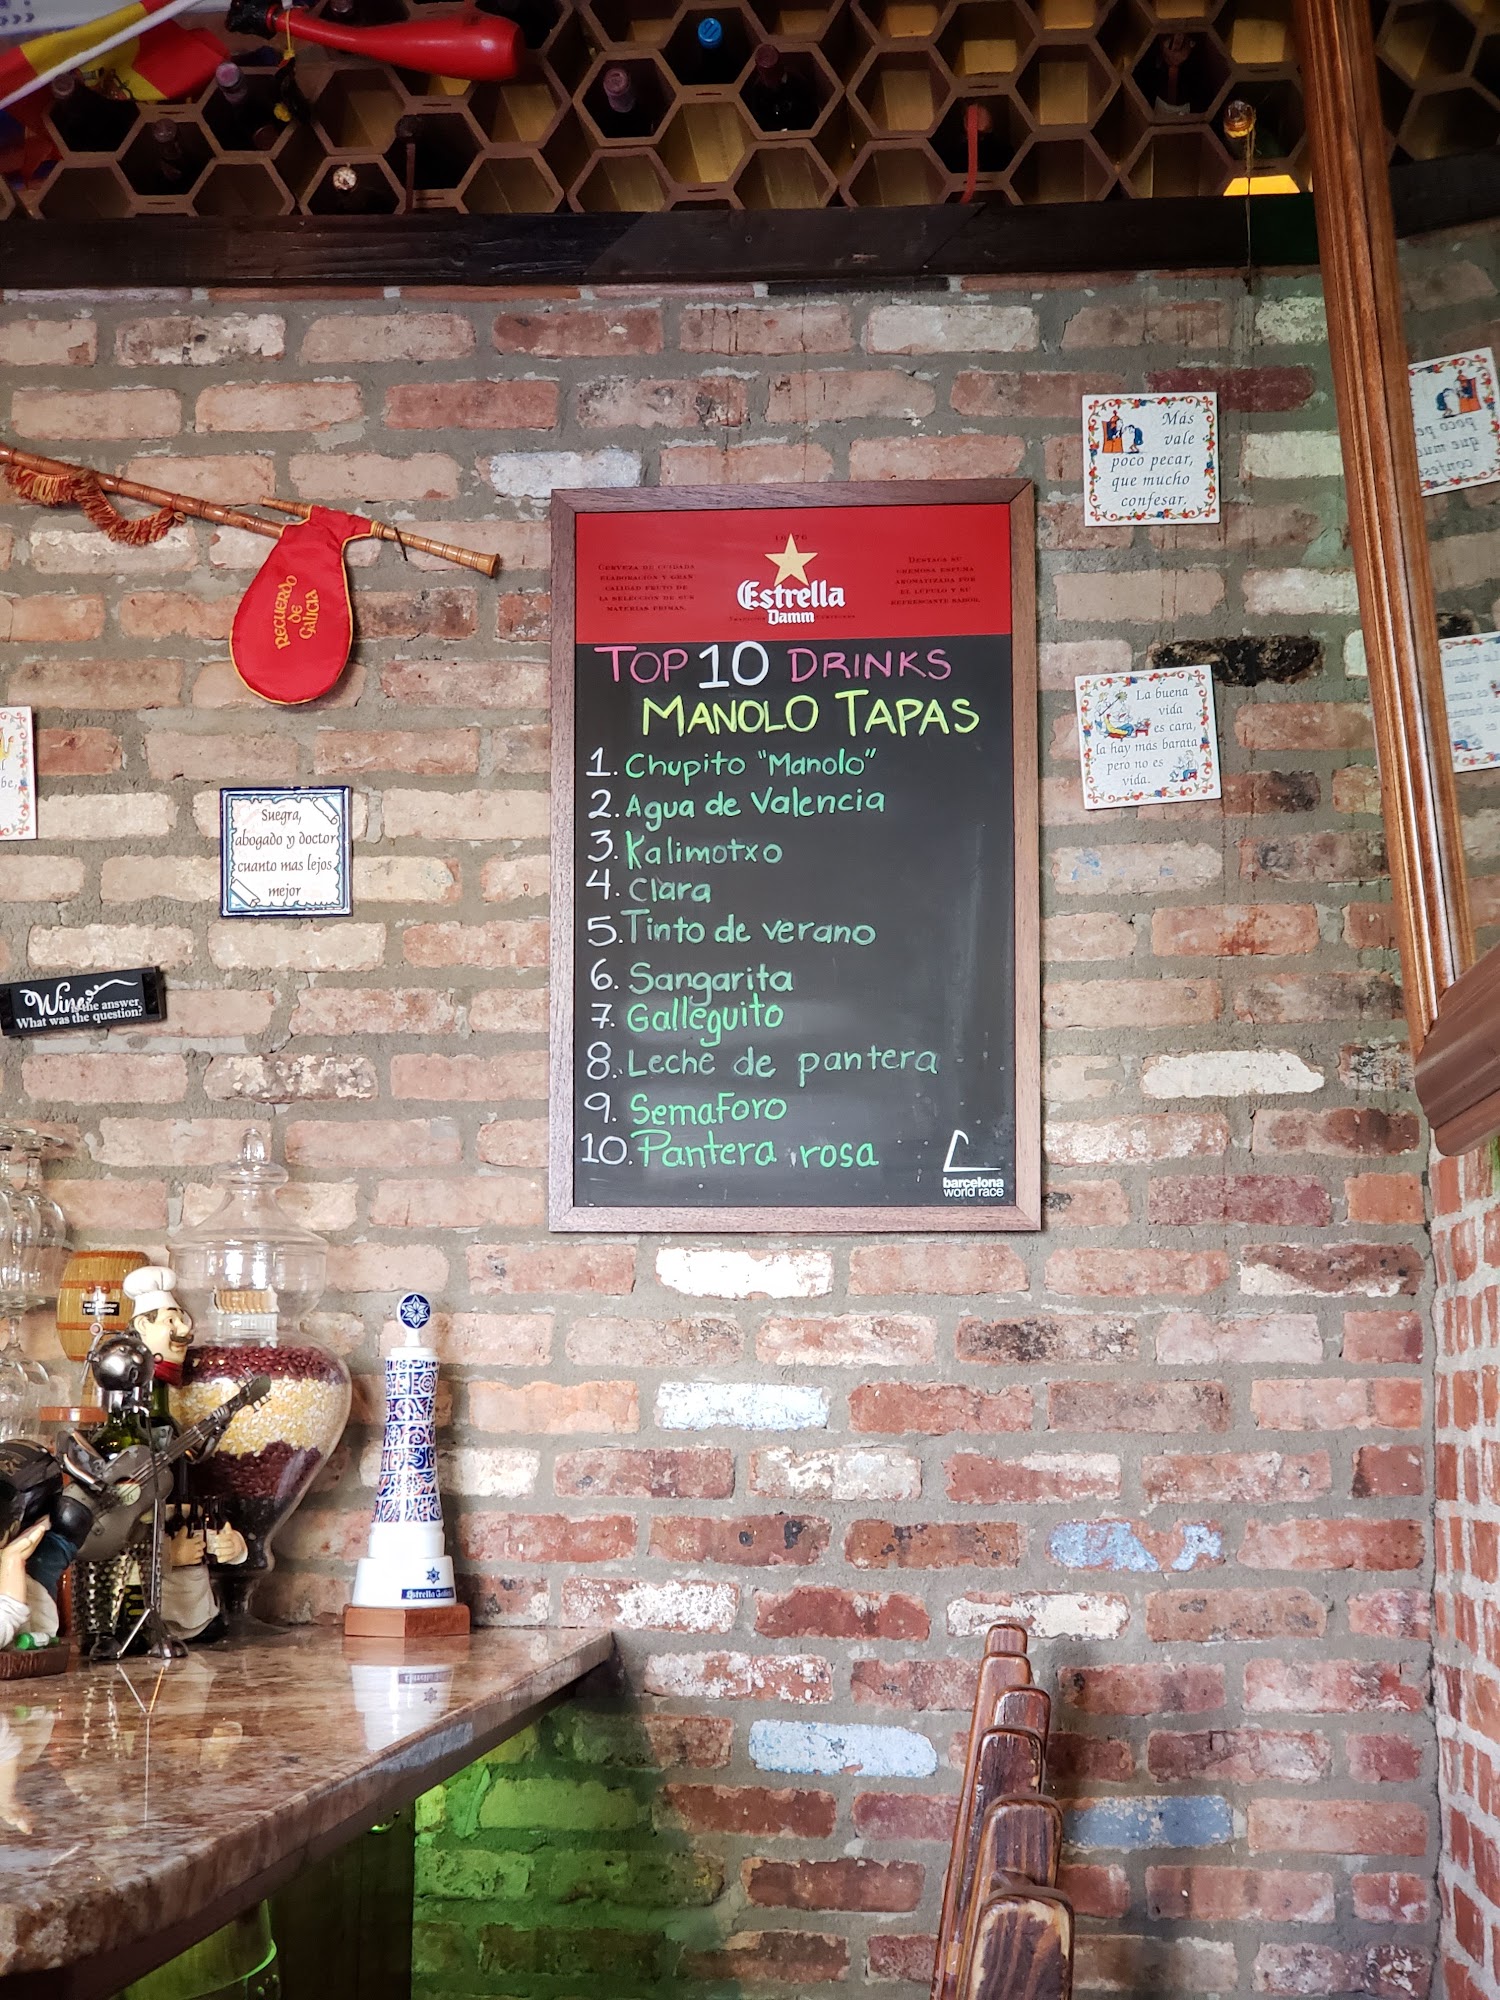 1876
CERVEZA DE CUIDADA
ELABORACIÓN Y GRAN
CALIDAD FRUTO DE
LA SELECCIÓN DE SUS
MATERIAS PRIMAS.
DESTACA SU
CREMOSA ESPUMA
AROMATIZADA POR
EL LÚPULO Y SU
REFRESCANTE SABOR.
Estrella
Damm
TOP 10 DRINKS
MANOLO TAPAS
1. Chupito "Manolo"
2. Agua de Valencia
3. Kalimotxo
4. Clara
5. Tinto de verano
6. Sangarita
7. Galleguito
8. Leche de pantera
9. Semaforo
10. Pantera rosa
barcelona
world race
Más
vale
poco pecar,
que mucho
confesar.
La buena
vida
es cara,
la hay más barata
pero no es
vida.
RECUERDO
DE
GALICIA
Suegra,
abogado y doctor
cuanto mas lejos
mejor
Wine
is the answer,
What was the question?
be,
Estrella Galicia